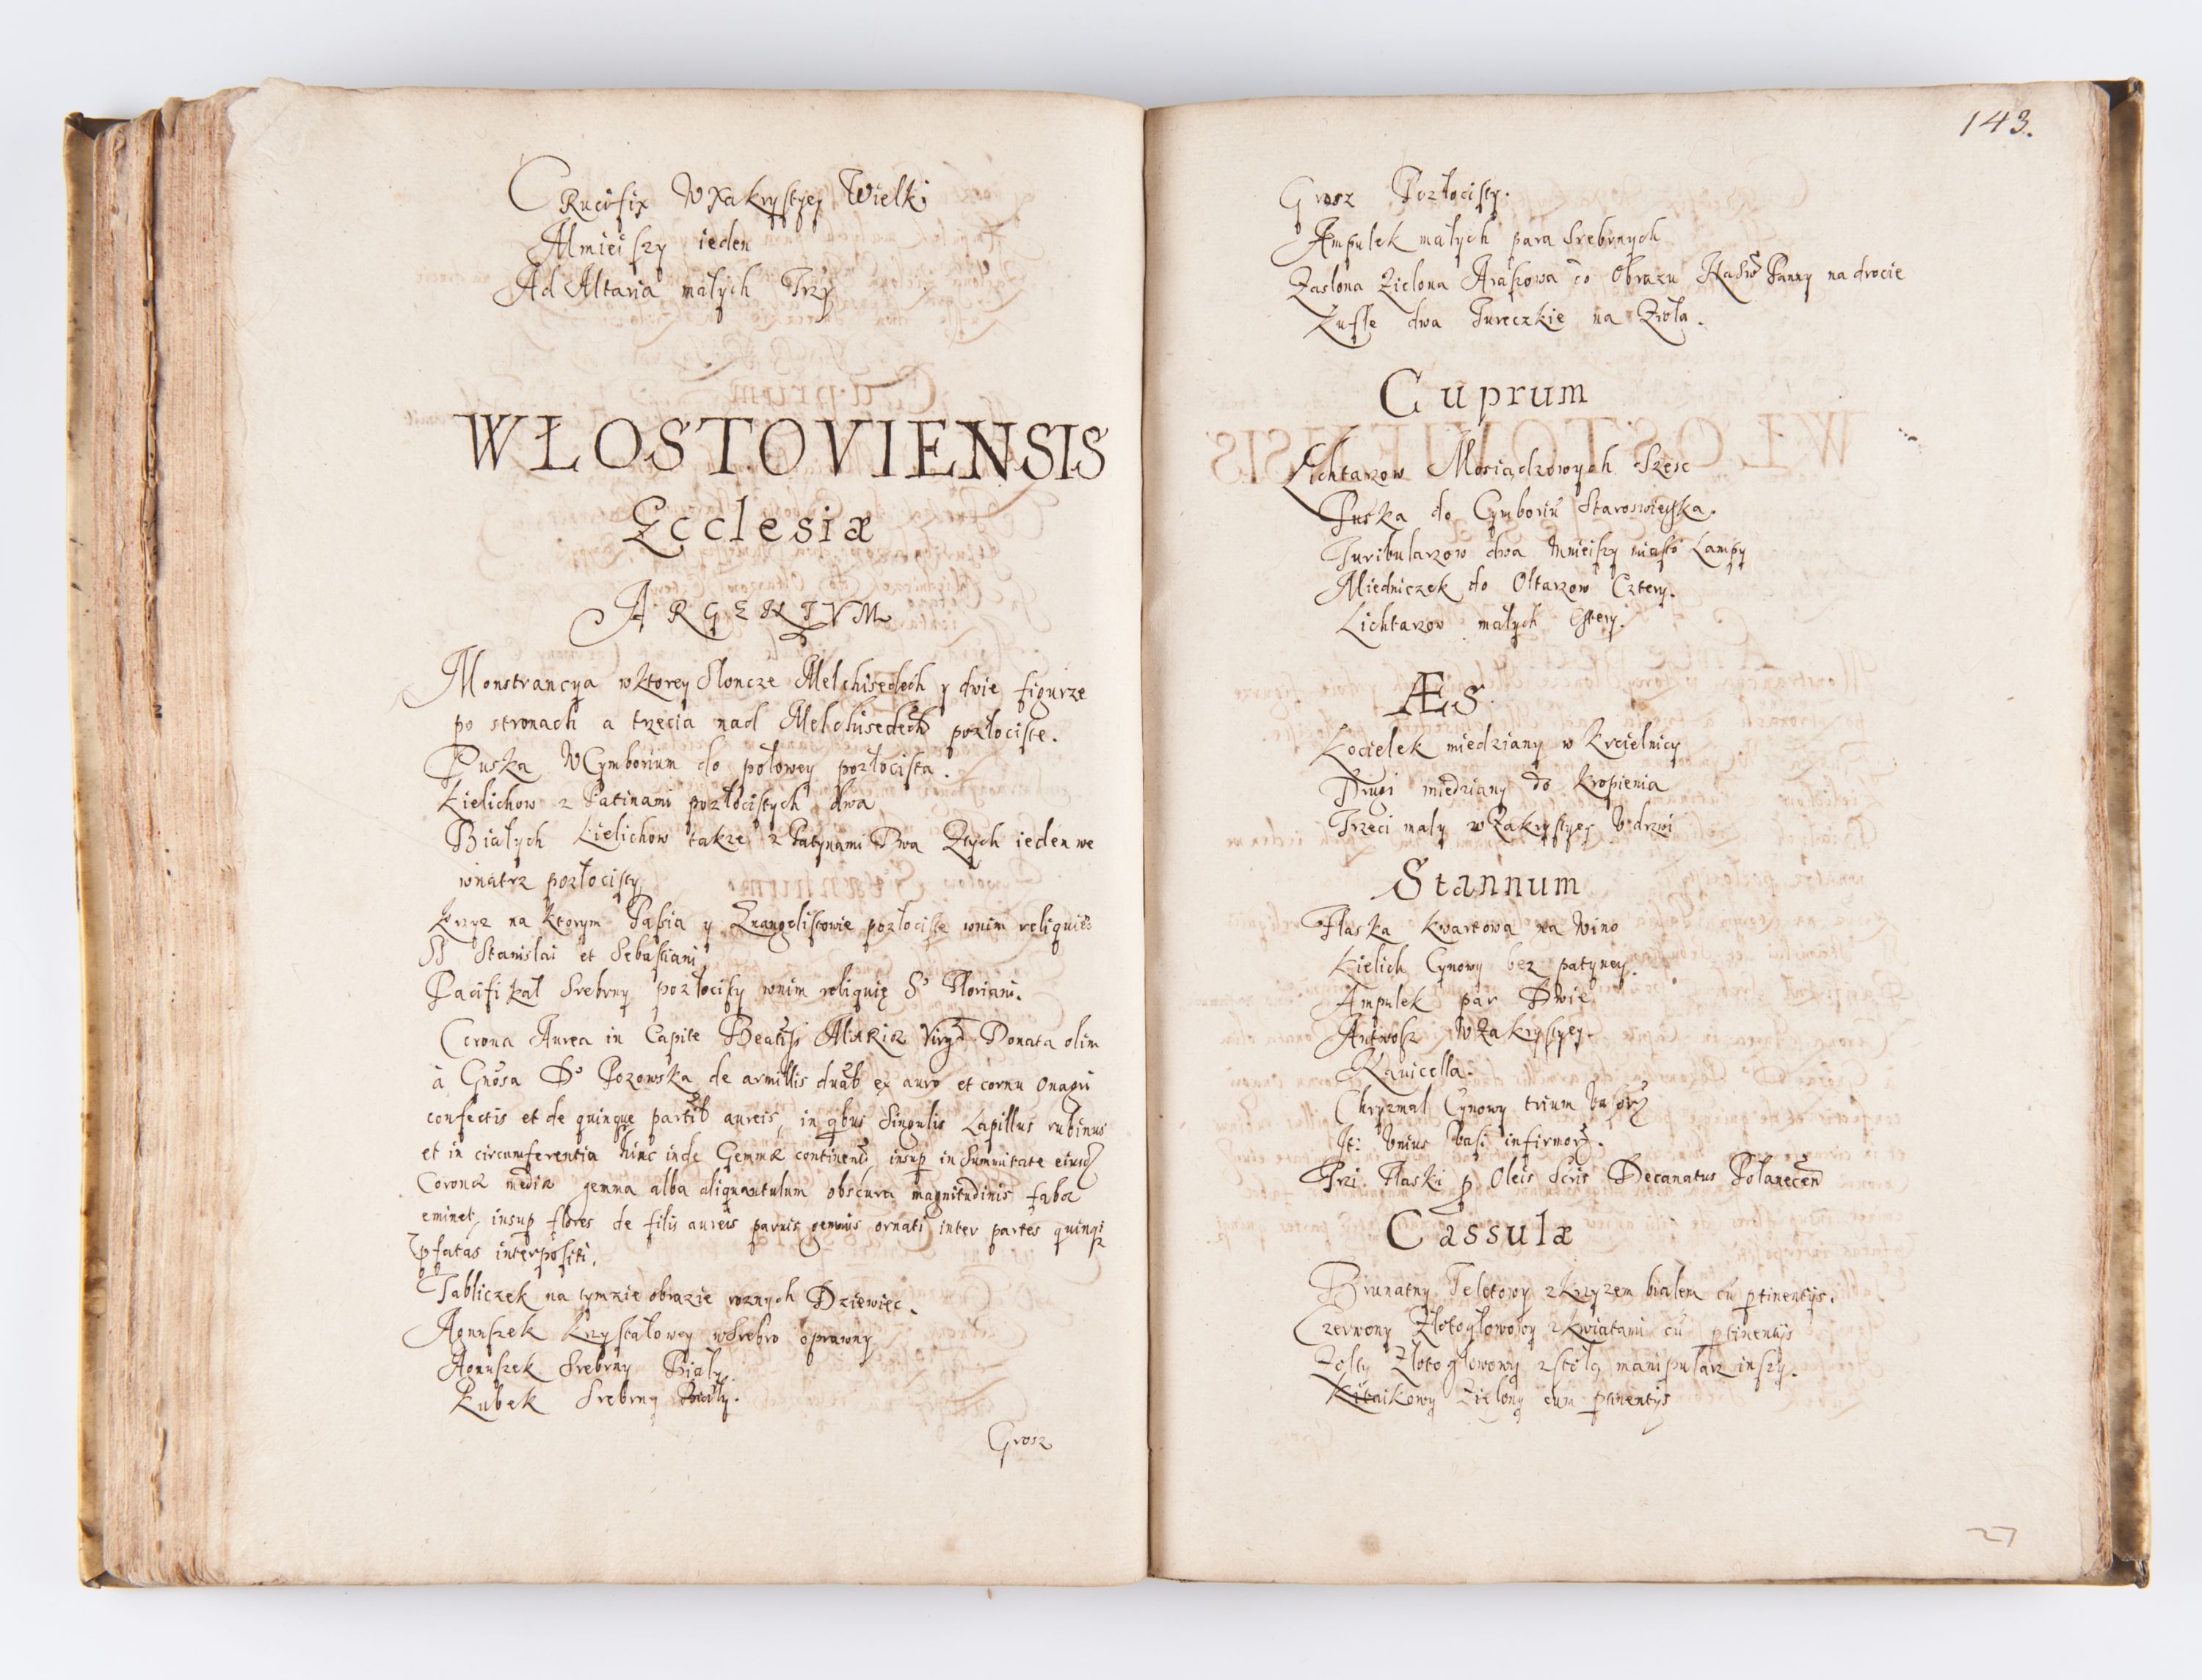 CRucifix W Xakrystyey Wielki
Mnieiszy ieden
Ad Altaria małych Trzy
WŁOSTOVIENSIS
Ecclesiæ
ARGENTVM
Monstrancya wktorey Sloncze Melchisedech y dwie figurze
po stronach a trzecia nad Melchisedech pozłociste.
Puska W Cymborium do połowey pozłocista.
Kielichow z Patinami pozłocistych dwa
Białych Kielichow takze z Patynami Dwa Ztych ieden we
wnatrz pozłocisty
Krzyz na ktorym Passia y Ewangelistowie pozłociste wnim reliquiæ
SS Stanislai et Sebastiani
Pacifikał Srebrny pozłocisty wnim reliquię S. Floriani.
Corona Aurea in Capite Beatiss MARIÆ Virg Donata olim
à Gnosa Da Pozowska de armillis duab ex auro et cornu Onagri
confectis et de quinque partib aureis, in qbus Singulis Lapillus rubinus
et in circumferentia hinc inde Gemmæ continent, insup in Summitate eiusd
Coronæ mediæ gemma alba aliquantulum obscura magnitudinis fabæ
eminet, insup flores de filis aureis parvis gemmis ornati inter partes quinq
pfatas interpositi.
Tabliczek na tymzie obrazie roznych Dziewiec.
Agnuszek krzystałowy wSrebro oprawny
Agnuszek Srebrny Biały
Kubek Srebrny Biały.
Grosz
143.
Grosz Pozłocisty.
Ampulek małych para Srebrnych
Zaslona Zielona Arasowa do Obrazu Nasw Panny na drocie
dwa Tureczkie na
Cuprum
Lichtarzow Mosiadzowych Szesc
Puska do Cymboriu Staroswiecka.
Turibularzow dwa Mnieiszy miasto Lampy
Miedniczek do Ołtarzow Cztery.
Lichtarzow małych Cztery.
ÆS.
Kocielek miedziany w krcielnicy
Drugi miedziany do kropienia
Trzeci mały w Zakrystyey V drzwi
Stannum
Flaska kwartowa na Wino
Kielich Cynowy bez patyney.
Ampulek par Dwie
W Zakrystyey.
Navicella.
Chryzmal Cynowy trium vasor
It: Vnius vasi infirmor.
Trzi Flaski p Oleis Scris Decanatus Polanecen
Cassulæ
Brunatny Teletowy z krzyzem białem cu ptinentijs.
Czerwony Złotogłowowy z kwiatami cu ptinentijs
Zolty Złotogłowowy z stołą manipularz inszy.
Kitaikowy Zielony cum ptinentijs
27